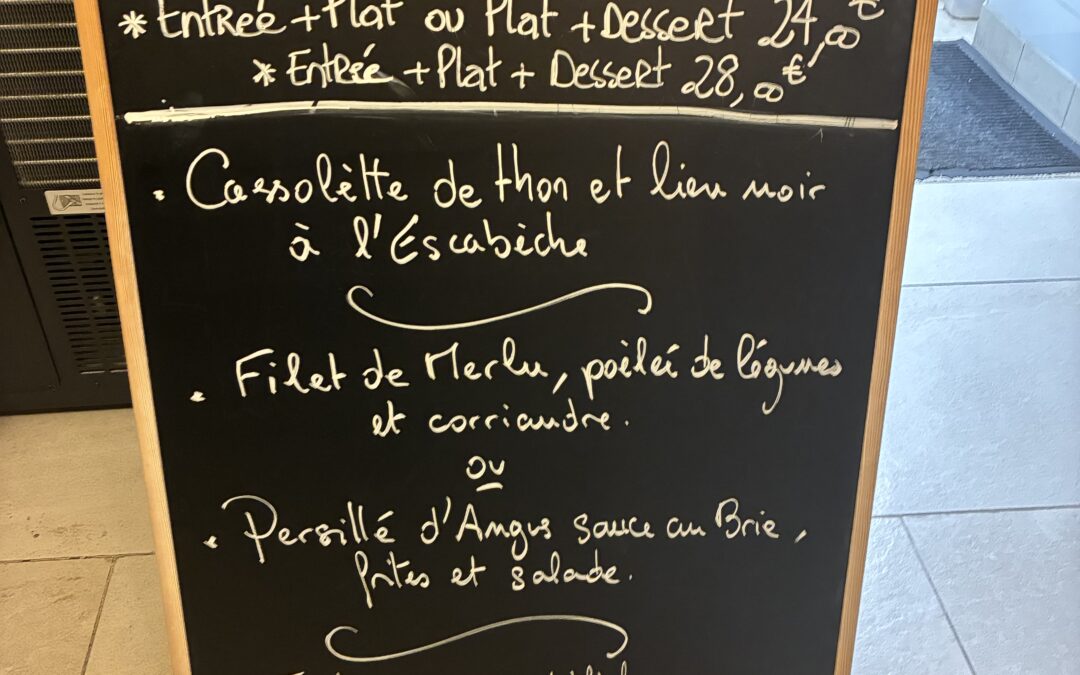 * Entrée + Plat ou Plat + Dessert 24,00€
* Entrée + Plat + Dessert 28,00€
• Cassolètte de thon et lieu noir
à l'Escabèche
• Filet de Merlu, poèleé de légumes
et corriandre.
ou
• Persillé d'Angus sauce au Brie,
frites et salade.